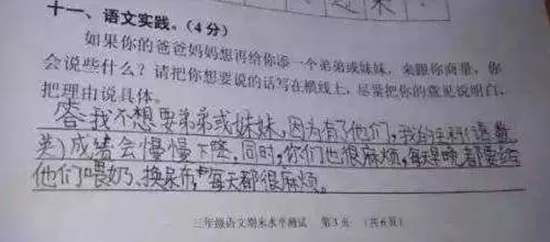 十一、语文实践。（4分）
如果你的爸爸妈妈想再给你添一个弟弟或妹妹，来跟你商量，你
会说些什么？请把你想要说的话写在横线上，尽量把你的意见说明白，
把理由说具体。
答：我不想要弟弟或妹妹，因为有了他们，我的主科（语数
英）成绩会慢慢下降，同时，你们也很麻烦，每天早晚都要给
他们喂奶、换尿布，每天都很麻烦。
三年级语文期末水平测试 第3页 （共6页）